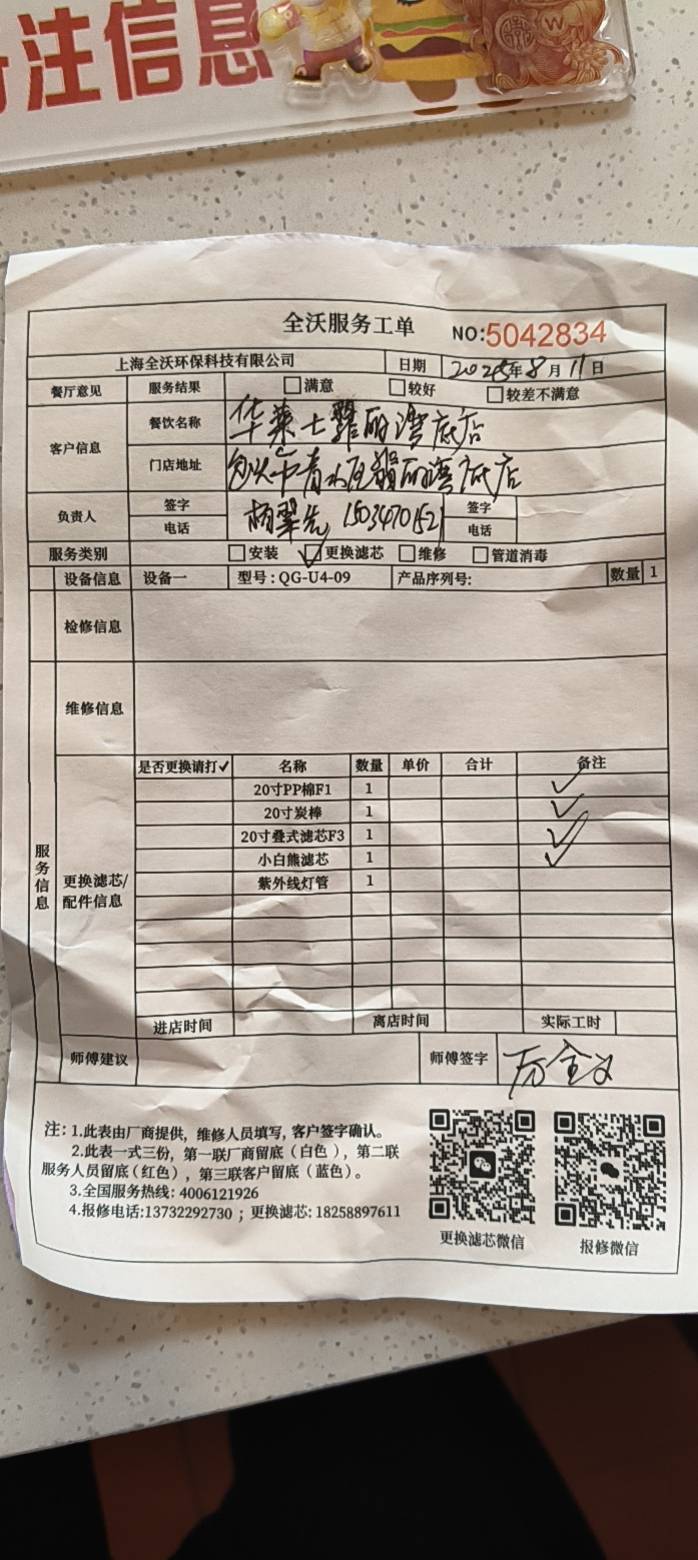 注信息
全沃服务工单 NO:5042834
上海全沃环保科技有限公司 日期 2025年8月11日
餐厅意见 服务结果 满意 较好 较差不满意
客户信息 餐饮名称 华莱士 丽湾底店
门店地址 包头市青 丽湾底店
负责人 签字 签字
电话 1503470152 电话
服务类别 安装 ✓更换滤芯 维修 管道消毒
设备信息 设备一 型号:QG-U4-09 产品序列号: 数量 1
检修信息
维修信息
服务信息
更换滤芯/配件信息
是否更换请打✓ 名称 数量 单价 合计 备注
20寸PP棉F1 1 ✓
20寸炭棒 1 ✓
20寸叠式滤芯F3 1 ✓
小白熊滤芯 1 ✓
紫外线灯管 1
进店时间 离店时间 实际工时
师傅建议 师傅签字
注: 1.此表由厂商提供, 维修人员填写, 客户签字确认。
2.此表一式三份, 第一联厂商留底(白色), 第二联
服务人员留底(红色), 第三联客户留底(蓝色)。
3.全国服务热线: 4006121926
4.报修电话:13732292730 ; 更换滤芯: 18258897611
更换滤芯微信 报修微信